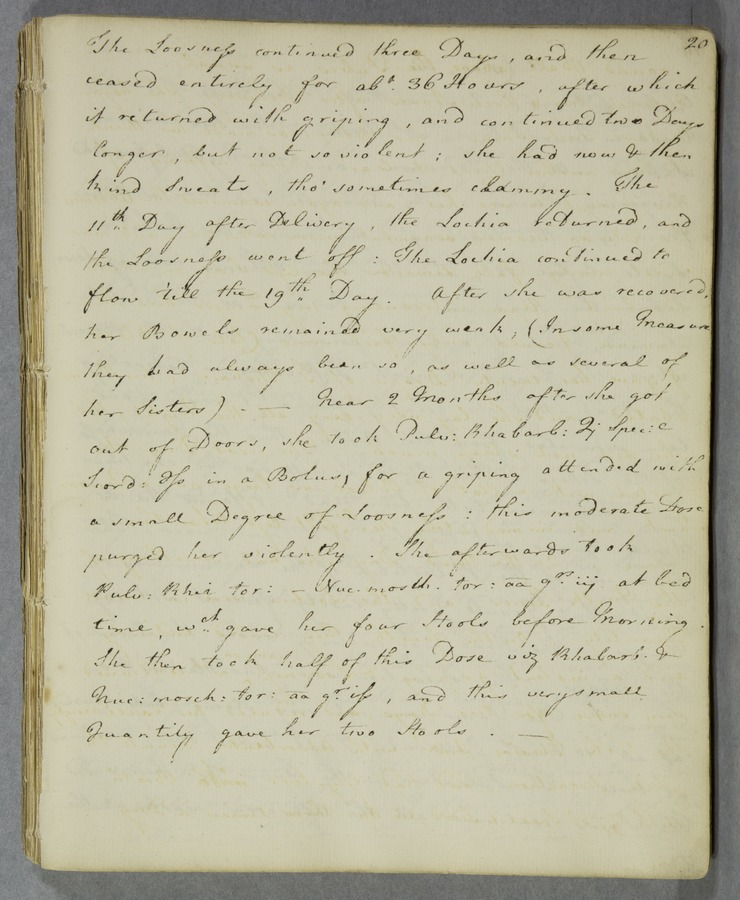 20
The Looseness continued three Days, and then
ceased entirely for abt. 36 Hours, after which
it returned with griping, and continued two Days
longer, but not so violent; she had now & then
kind Sweats, tho' sometimes clammy. The
11th Day after Delivery, the Lochia returned, and
the Looseness went off: The Lochia continued to
flow till the 19th Day. After she was recovered,
her Bowels remained very weak, (In some Measure
they had always been so, as well as several of
her Sisters). — Near 2 Months after she got
out of Doors, she took Pulv: Rhabarb: ℈j Specie
Scord: ʒſs in a Bolus, for a griping attended with
a small Degree of Looseness: this moderate Dose
purged her violently. She afterwards took
Pulv: Rhei tor: – Nuc. mosch. tor: aa grs iij at bed
time, wch gave her four Stools before Morning.
She then took half of this Dose viz Rhabarb. &
Nuc: mosch: tor: aa gr iſs, and this very small
Quantity gave her two Stools. —